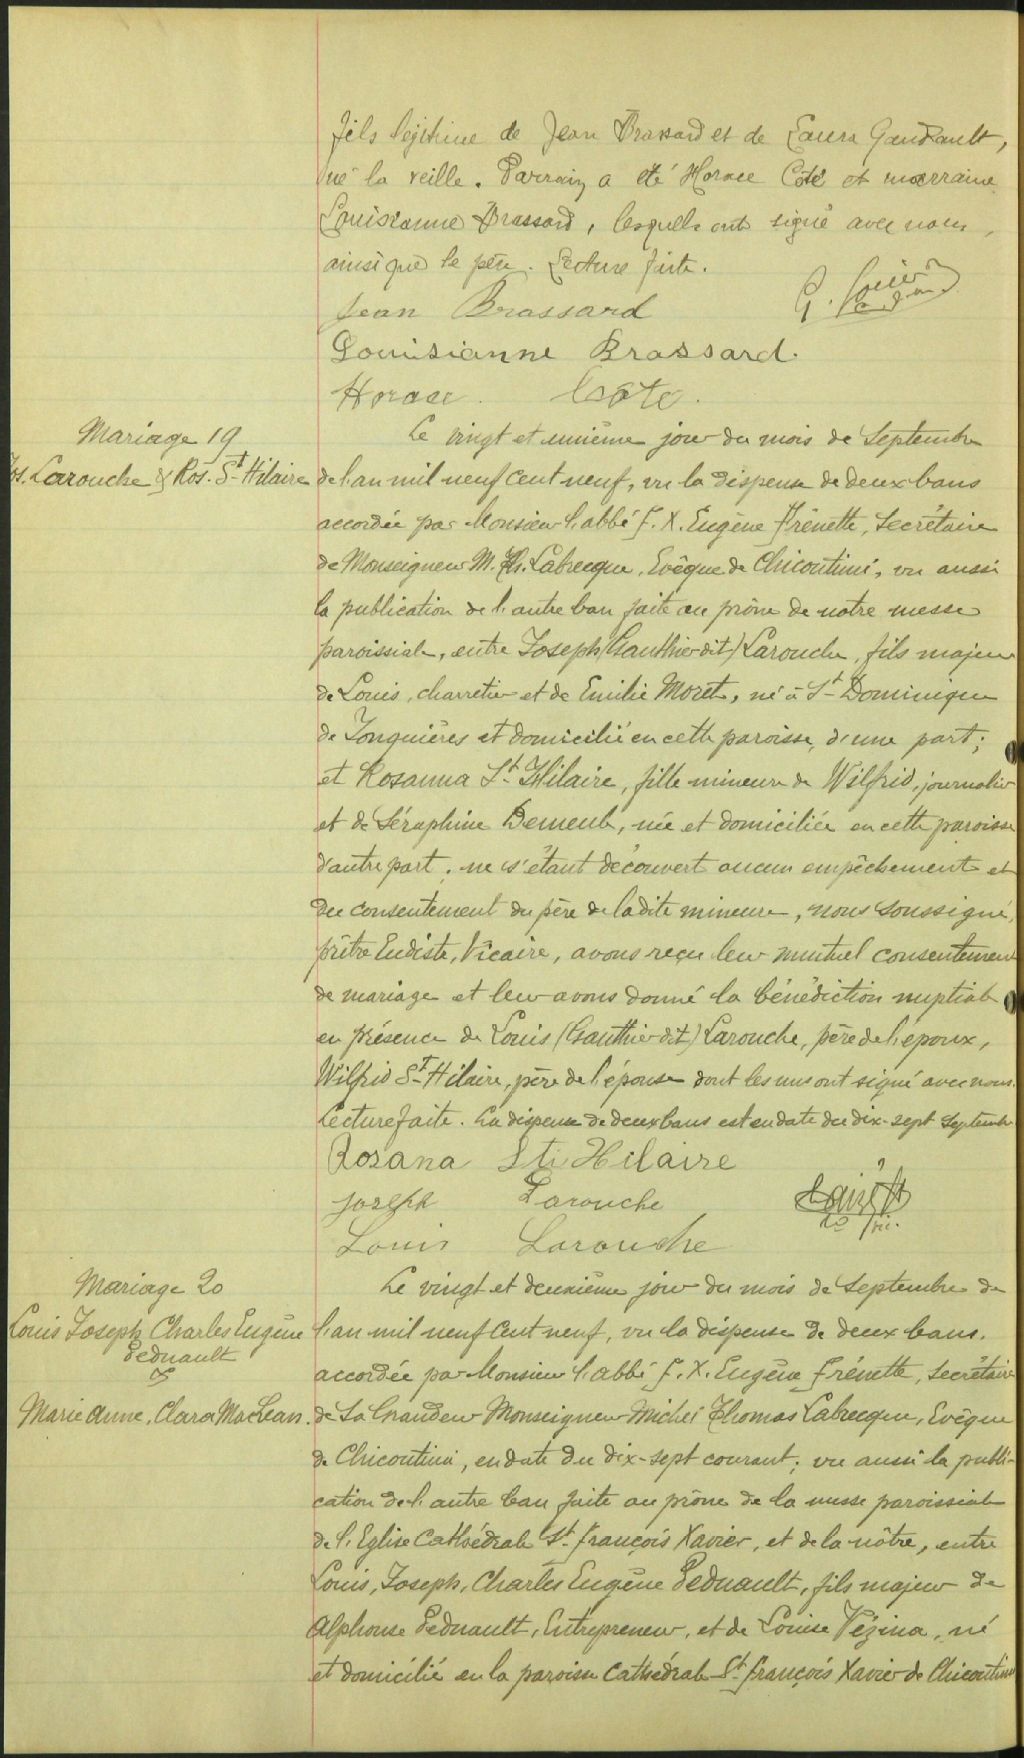 fils légitime de Jean Brassard et de Laura Gaudrault,
né la veille. Parrain a été Horace Côté et marraine
Louisianne Brassard, lesquels ont signé avec nous,
ainsi que le père. Lecture faite.
Jean Brassard
Louisianne Brassard.
Horace. Côté.
Mariage 19
Jos. Larouche & Ros. St-Hilaire
Le vingt et unième jour du mois de Septembre
de l'an mil neuf cent neuf, vu la dispense de deux bans
accordée par Monsieur l'abbé F. X. Eugène Frénette, Secrétaire
de Monseigneur M. Th. Labrecque, Evêque de Chicoutimi, vu aussi
la publication de l'autre ban faite au prône de notre messe
paroissiale, entre Joseph (Gauthier dit) Larouche, fils majeur
de Louis, charretier et de Emilie Moret, né à St-Dominique
de Jonquières et domicilié en cette paroisse, d'une part;
et Rosanna St-Hilaire, fille mineure de Wilfrid, journalier
et de Séraphine Demeule, née et domiciliée en cette paroisse
d'autre part; ne s'étant découvert aucun empêchement et
du consentement du père de la dite mineure, nous soussigné,
prêtre Eudiste, Vicaire, avons reçu leur mutuel consentement
de mariage et leur avons donné la bénédiction nuptiale
en présence de Louis (Gauthier dit) Larouche, père de l'époux,
Wilfrid St-Hilaire, père de l'épouse dont les uns ont signé avec nous.
Lecture faite. La dispense de deux bans est en date du dix-sept Septembre
Rosana St Hilaire
Joseph Larouche
Louis Larouche
Mariage 20
Louis Joseph Charles Eugène
Pednault
&
Marie Anne, Clara MacLean.
Le vingt et deuxième jour du mois de Septembre de
l'an mil neuf cent neuf, vu la dispense de deux bans.
accordée par Monsieur l'abbé F. X. Eugène Frénette, Secrétaire
de Sa Grandeur Monseigneur Michel Thomas Labrecque, Evêque
de Chicoutimi, en date du dix-sept courant; vu aussi la publi-
cation de l'autre ban faite au prône de la messe paroissiale
de l'Eglise Cathédrale St-François Xavier, et de la nôtre, entre
Louis, Joseph, Charles Eugène Pednault, fils majeur de
Alphonse Pednault, Entrepreneur, et de Louise Vézina, né
et domicilié en la paroisse Cathédrale St-François Xavier de Chicoutimi